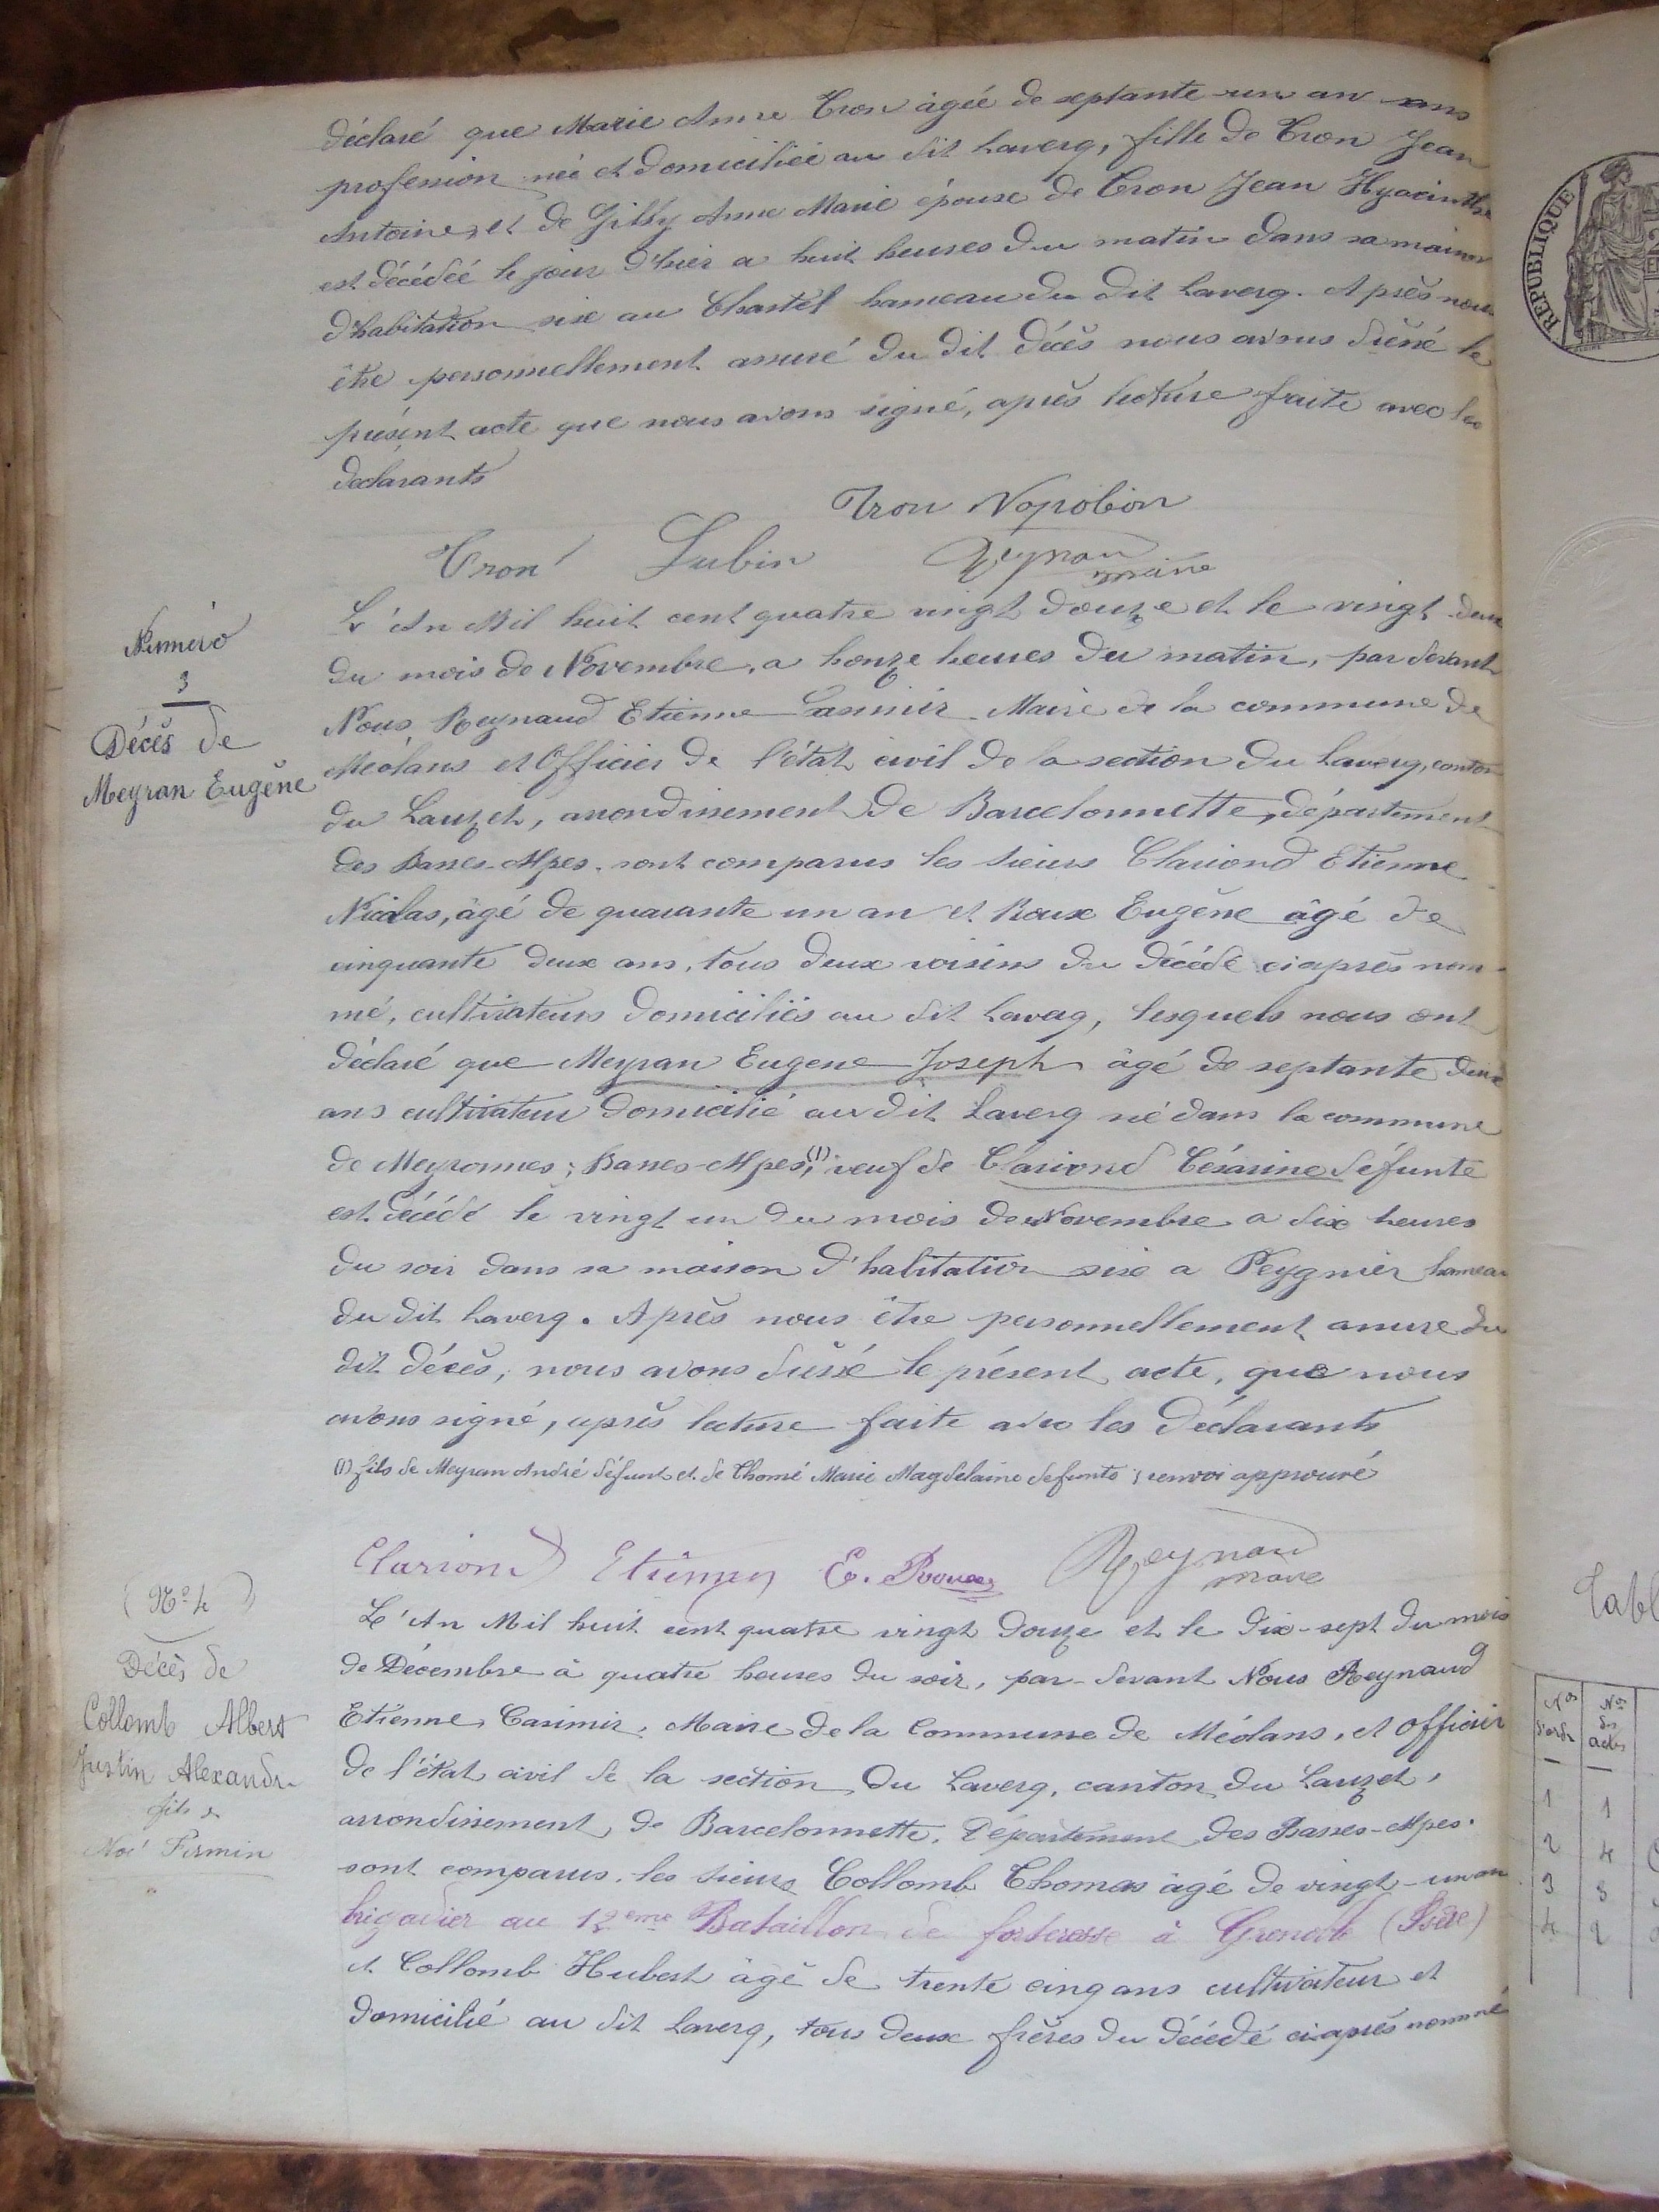 déclaré que Marie Anne Tron âgée de septante un an sans
profession née et domiciliée au dit Laverq, fille de Tron Jean
Antoine, et de Gilly Anne Marie épouse de Tron Jean Hyacinthe
est décédée le jour d'hier a huit heures du matin dans sa maison
d'habitation sise au Chastel hameau du dit Laverq. Après nous
être personnellement assuré du dit décès nous avons dressé le
présent acte que nous avons signé, après lecture faite avec les
déclarants
Tron Napoléon
Tron Lubin Reynaud
maire
Numéro
3
Décès de
Meyran Eugène
L'An Mil huit cent quatre vingt douze et le vingt deux
du mois de Novembre, a honze heures du matin, par devant
Nous, Reynaud Etienne Casimir Maire de la commune de
Méolans et Officier de l'état civil de la section du Laverq, canton
du Lauzet, arrondissement de Barcelonnette, département
des Basses-Alpes. sont comparus les sieurs Clariond Etienne
Nicolas, âgé de quarante un an et Roux Eugène âgé de
cinquante deux ans, tous deux voisins du décédé ciaprès nom-
mé, cultivateurs domiciliés au dit Laverq, lesquels nous ont
déclaré que Meyran Eugene Joseph âgé de septante deux
ans cultivateur domicilié au dit Laverq né dans la commune
de Meyronnes; Basses-Alpes, (1) veuf de Clariond Césarine défunte
est décédé le vingt un du mois de Novembre a dix heures
du soir dans sa maison d'habitation sise a Peygnier hameau
du dit Laverq. Après nous être personnellement assuré du
dit décès, nous avons dressé le présent acte, que nous
avons signé, après lecture faite avec les déclarants
(1) fils de Meyran André défunt et de Thomé Marie Magdelaine defunte; renvoi approuvé
Clariond Etienne E. Roux Reynaud
maire
(No 4)
Décès de
Collomb Albert
Justin Alexandre
fils de
Noé Firmin
L'An Mil huit cent quatre vingt douze et le dix-sept du mois
de Décembre à quatre heures du soir, par-devant Nous Reynaud
Etienne, Casimir, Maire de la Commune de Méolans, et Officier
de l'état civil de la section du Laverq, canton du Lauzet,
arrondissement de Barcelonnette, Département des Basses-Alpes.
sont comparus, les sieurs Collomb Thomas âgé de vingt-un an
brigadier au 12eme Bataillon de forteresse à Grenoble (Isère)
et Collomb Hubert âgé de trente cinq ans cultivateur et
domicilié au dit Laverq, tous deux frères du décédé ci-après nommé
REPUBLIQUE
Tabl
Nos d'ordre
Nos des actes
1 1
2 4
3 3
4 2